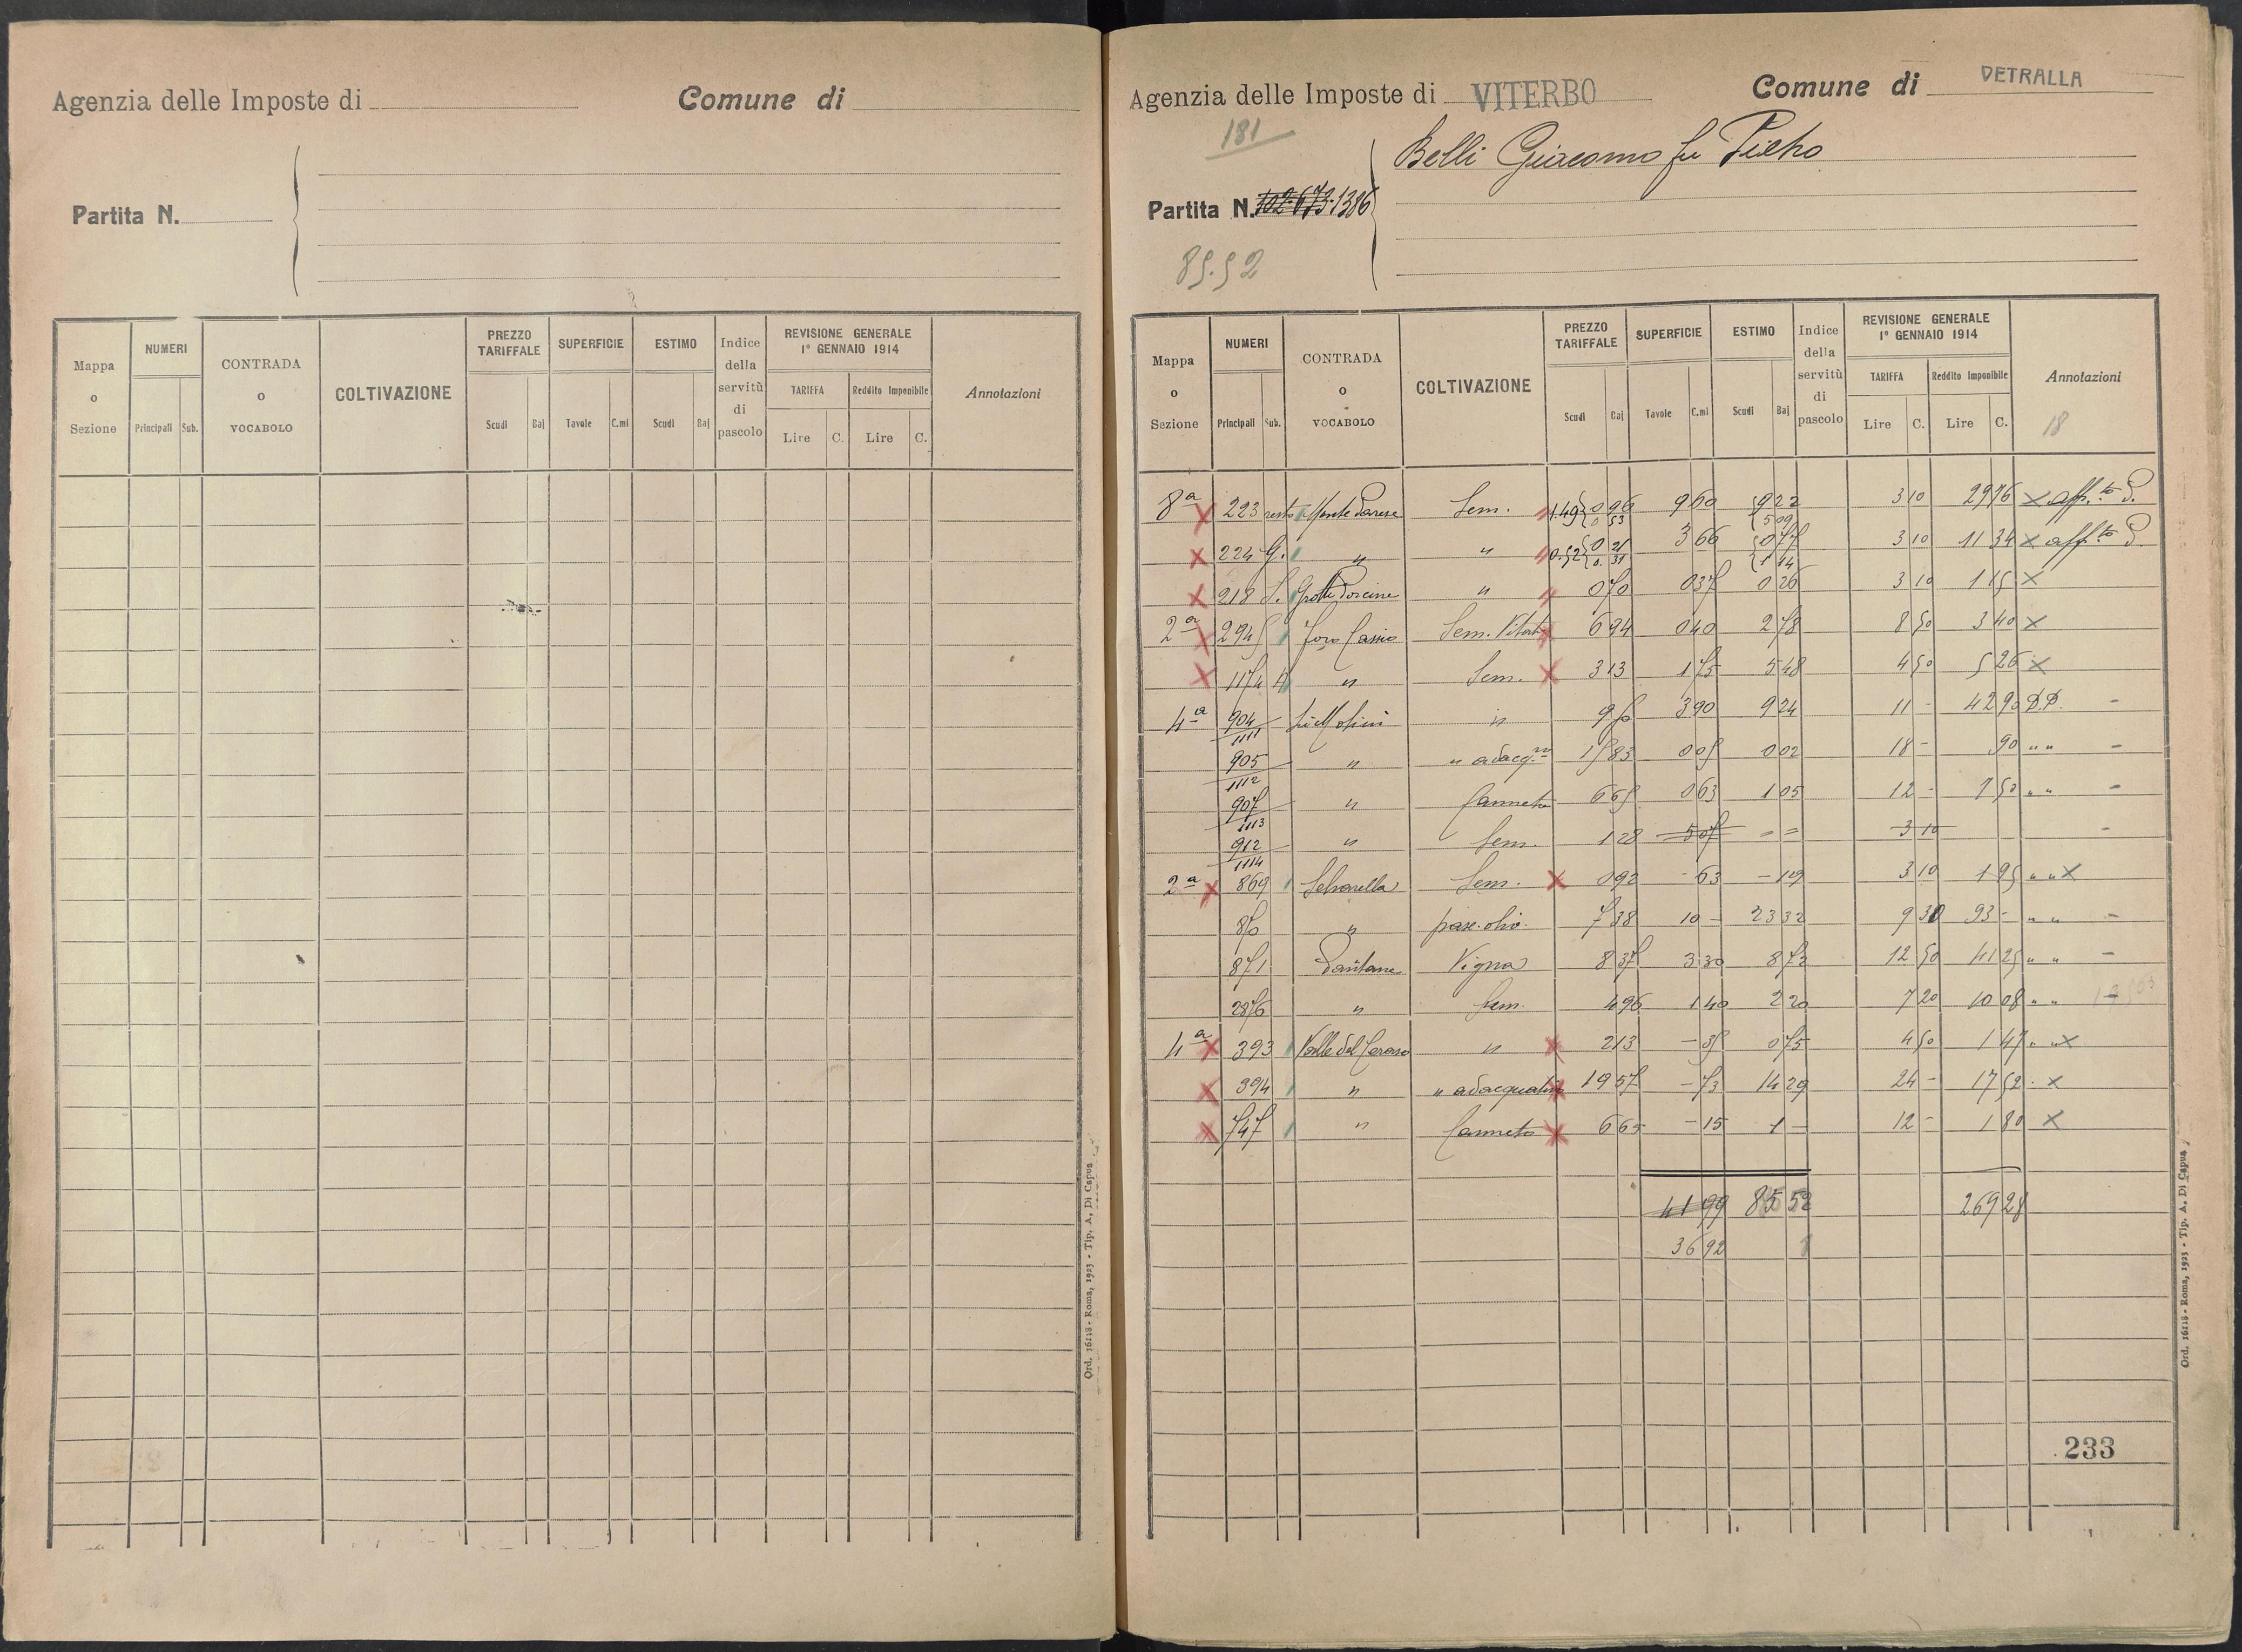 Agenzia delle Imposte di
Comune di
Partita N.
Mappa o Sezione
NUMERI
Principali
Sub.
CONTRADA o VOCABOLO
COLTIVAZIONE
PREZZO TARIFFALE
Scudi
Baj
SUPERFICIE
Tavole
C.mi
ESTIMO
Scudi
Baj
Indice della servitù di pascolo
REVISIONE GENERALE
1° GENNAIO 1914
TARIFFA
Lire
C.
Reddito Imponibile
Lire
C.
Annotazioni
Ord. 16118 - Roma, 1923 - Tip. A. Di Capua
Agenzia delle Imposte di VITERBO
Comune di VETRALLA
181
Belli Giacomo fu Pietro
Partita N. 102 673 1386
85.52
Mappa o Sezione
NUMERI
Principali
Sub.
CONTRADA o VOCABOLO
COLTIVAZIONE
PREZZO TARIFFALE
Scudi
Baj
SUPERFICIE
Tavole
C.mi
ESTIMO
Scudi
Baj
Indice della servitù di pascolo
REVISIONE GENERALE
1° GENNAIO 1914
TARIFFA
Lire
C.
Reddito Imponibile
Lire
C.
Annotazioni
18
8a 223 resto Monte Panese Sem. 1.49 0 96 0 53 9 60 9 22 5 09 3 10 29 76 aff.to P.
224 G. " " 0.52 0 21 0.31 3 66 0 77 1 14 3 10 11 34 aff.to P.
218 S. Grotte Porcine " 0 70 0 37 0 26 3 10 1 15
2a 294 Foro Cassio Sem. Vitato 6 94 0 40 2 78 8 50 3 40
1174 " Sem. 3 13 1 75 5 48 4 50 5 26
4a 904/1111 Li Molini " 3 90 9 24 11 - 42 90
905/1112 " " adacq. 0 05 0 02 18 - 90 " "
907/1113 " Canneto 6 65 0 63 1 05 12 - 7 50 " "
912/1114 " Sem. 1 28 5 07 = = 3 10
2a 869 Selvarella Sem. 0 92 - 63 - 19 3 10 1 95 " "
870 " pasc. oliv. 7 38 10 - 23 32 9 30 93 - " "
871 Vigna 8 37 3 30 8 73 12 50 41 25 " "
2876 " Sem. 4 96 1 40 2 20 7 20 10 08 " "
4a 393 Valle del Ceraso " 2 13 0 75 4 50 1 47 " "
394 " " adacquativo 19 57 - 73 14 29 24 - 17 52
747 " Canneto 6 65 - 15 1 - 12 - 1 80
41 99 85 52 269 28
36 92
233
Ord. 16118 - Roma, 1923 - Tip. A. Di Capua